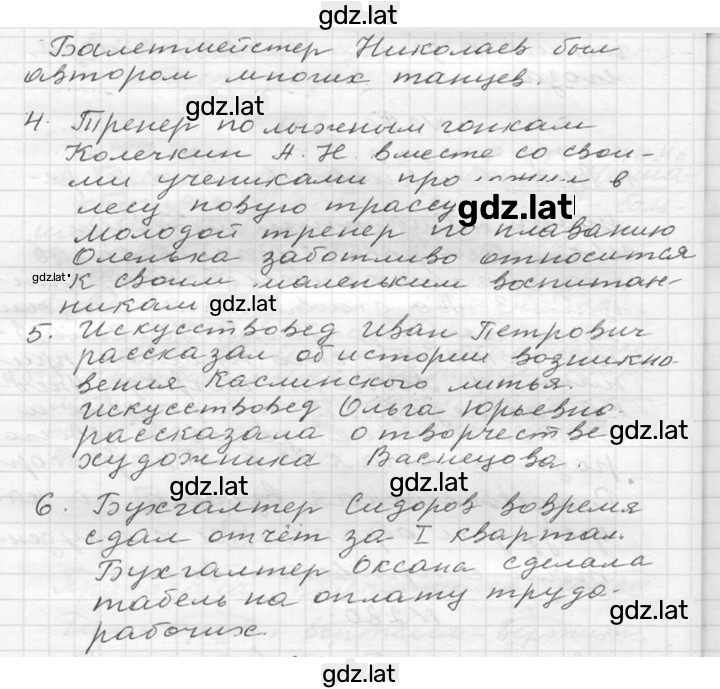 gdz.lat
Балетмейстер Николаев был
автором многих танцев.
gdz.lat
4. Тренер по лыжным гонкам
Колечкин А. Н. вместе со свои-
ми учениками про в
лесу новую трассу
gdz.lat
Молодой тренер по плаванию
Оленька заботливо относится
gdz.lat
к своим маленьким воспитан-
никам gdz.lat
5. Искусствовед Иван Петрович
рассказал об истории возникно-
вения Каслинского литья.
Искусствовед Ольга Юрьевна
рассказала о творчестве gdz.lat
художника Васнецова.
gdz.lat gdz.lat
6. Бухгалтер Сидоров вовремя
сдал отчёт за I квартал.
Бухгалтер Оксана сделала
табель на оплату трудо- gdz.lat
рабочих.
gdz.lat